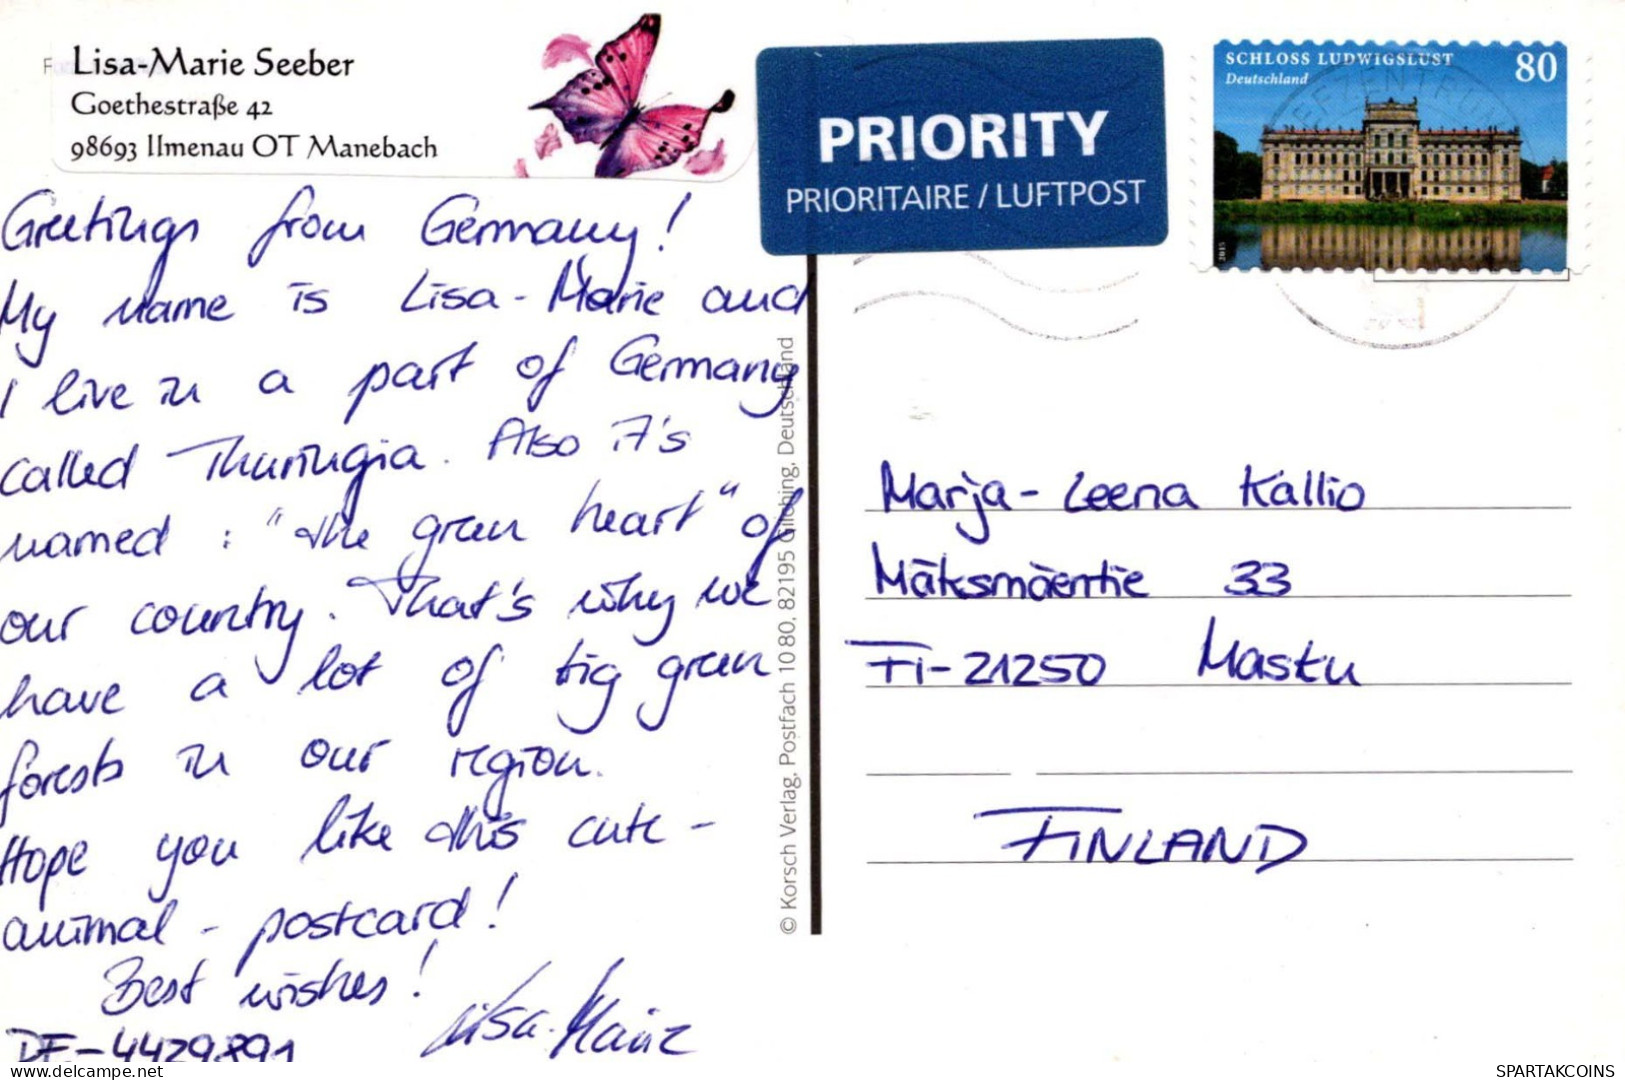 Lisa-Marie Seeber
Goethestraße 42
98693 Ilmenau OT Manebach
PRIORITY
PRIORITAIRE / LUFTPOST
SCHLOSS LUDWIGSLUST
Deutschland
80
2015
Greetings from Germany!
My name is Lisa-Marie and
I live in a part of Germany
called Thuringia. Also it's
named: "the green heart" of
our country. That's why we
have a lot of big green
forests in our region.
Hope you like this cute-
animal-postcard!
Best wishes!
Lisa-Marie
DE-4429891
© Korsch Verlag, Postfach 10 80, 82195 Gilching, Deutschland
Marja-Leena Kallio
Mäksmäentie 33
FI-21250 Masku
FINLAND
www.delcampe.net
SPARTAKCOINS